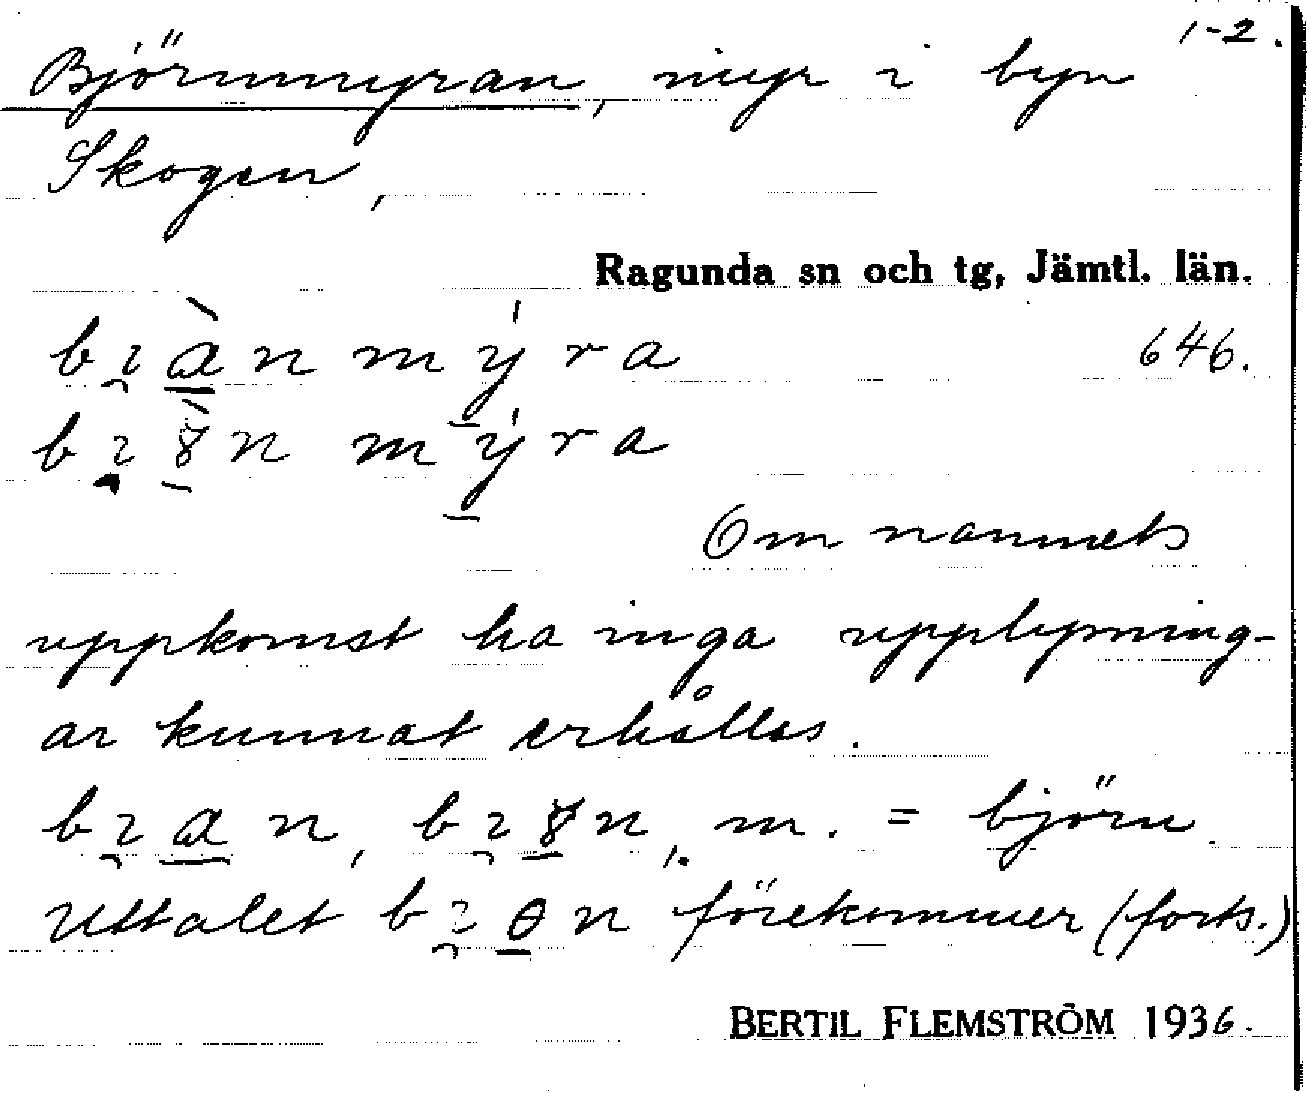 1-2.
Björnmyran, myr i byn
Skogen,
Ragunda sn och tg, Jämtl. län.
646.
Om namnets
uppkomst ha inga upplysning-
ar kunnat erhållas.
m. = björn.
Uttalet förekommer (forts.)
BERTIL FLEMSTRÖM 1936.